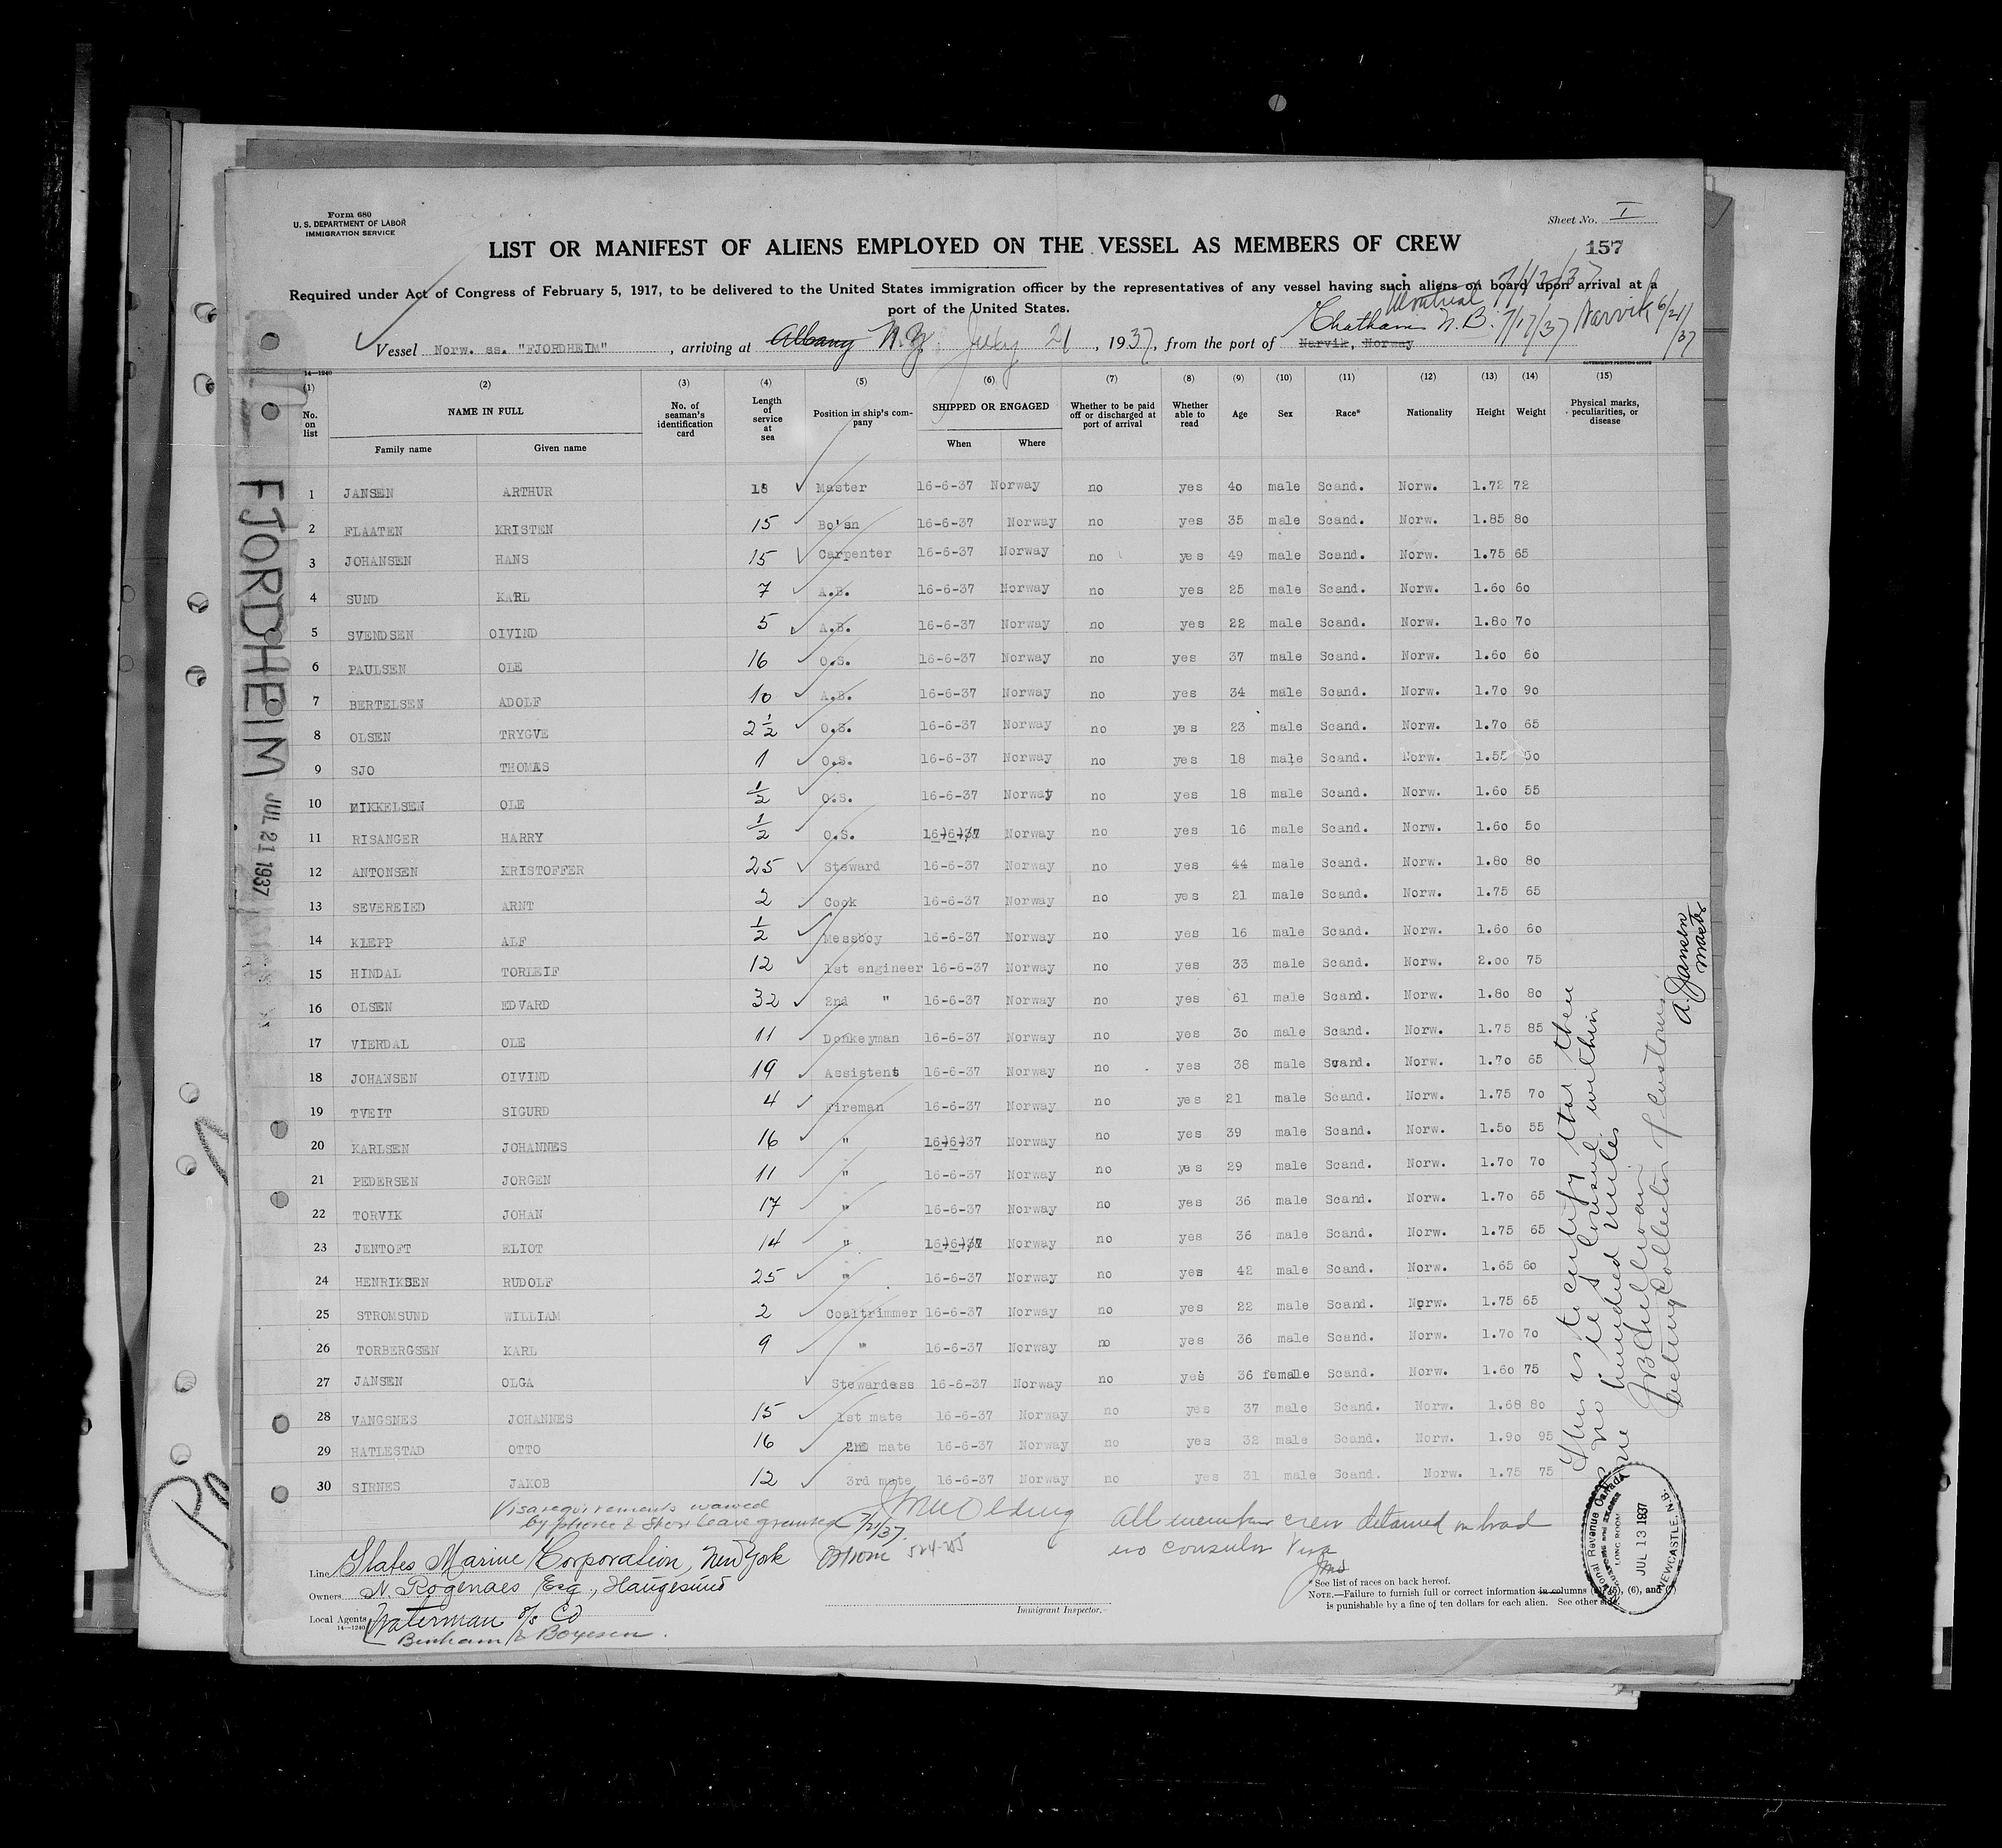 Form 680
U. S. DEPARTMENT OF LABOR
IMMIGRATION SERVICE
Sheet No. I
LIST OR MANIFEST OF ALIENS EMPLOYED ON THE VESSEL AS MEMBERS OF CREW
157
Required under Act of Congress of February 5, 1917, to be delivered to the United States immigration officer by the representatives of any vessel having such aliens on board upon arrival at a
port of the United States.
Montreal 7/12/37
Chatham N.B. 7/17/37 Narvik 6/21/37
Vessel Norw. ss. "FJORDHEIM", arriving at Albany N.Y. July 21, 1937, from the port of Narvik, Norway
14—1240
GOVERNMENT PRINTING OFFICE
(1) (2) (3) (4) (5) (6) (7) (8) (9) (10) (11) (12) (13) (14) (15)
No. on list NAME IN FULL No. of seaman's identification card Length of service at sea Position in ship's company SHIPPED OR ENGAGED Whether to be paid off or discharged at port of arrival Whether able to read Age Sex Race* Nationality Height Weight Physical marks, peculiarities, or disease
Family name Given name When Where
1 JANSEN ARTHUR 18 Master 16-6-37 Norway no yes 40 male Scand. Norw. 1.72 72
2 FLAATEN KRISTEN 15 Bo'sn 16-6-37 Norway no yes 35 male Scand. Norw. 1.85 80
3 JOHANSEN HANS 15 Carpenter 16-6-37 Norway no yes 49 male Scand. Norw. 1.75 65
4 SUND KARL 7 A.B. 16-6-37 Norway no yes 25 male Scand. Norw. 1.60 60
5 SVENDSEN OIVIND 5 A.B. 16-6-37 Norway no yes 22 male Scand. Norw. 1.80 70
6 PAULSEN OLE 16 O.S. 16-6-37 Norway no yes 37 male Scand. Norw. 1.60 60
7 BERTELSEN ADOLF 10 A.B. 16-6-37 Norway no yes 34 male Scand. Norw. 1.70 90
8 OLSEN TRYGVE 2½ O.S. 16-6-37 Norway no yes 23 male Scand. Norw. 1.70 65
9 SJO THOMAS 1 O.S. 16-6-37 Norway no yes 18 male Scand. Norw. 1.55
10 MIKKELSEN OLE ½ O.S. 16-6-37 Norway no yes 18 male Scand. Norw. 1.60 55
11 RISANGER HARRY ½ O.S. 16-6-37 Norway no yes 16 male Scand. Norw. 1.60 50
12 ANTONSEN KRISTOFFER 25 Steward 16-6-37 Norway no yes 44 male Scand. Norw. 1.80 80
13 SEVEREIED ARNT 2 Cook 16-6-37 Norway no yes 21 male Scand. Norw. 1.75 65
14 KLEPP ALF ½ Messboy 16-6-37 Norway no yes 16 male Scand. Norw. 1.60 60
15 HINDAL TORLEIF 12 1st engineer 16-6-37 Norway no yes 33 male Scand. Norw. 2.00 75
16 OLSEN EDVARD 32 2nd " 16-6-37 Norway no yes 61 male Scand. Norw. 1.80 80
17 VIERDAL OLE 11 Donkeyman 16-6-37 Norway no yes 30 male Scand. Norw. 1.75 85
18 JOHANSEN OIVIND 19 Assistent 16-6-37 Norway no yes 38 male Scand. Norw. 1.70 65
19 TVEIT SIGURD 4 Fireman 16-6-37 Norway no yes 21 male Scand. Norw. 1.75 70
20 KARLSEN JOHANNES 16 " 16-6-37 Norway no yes 39 male Scand. Norw. 1.50 55
21 PEDERSEN JORGEN 11 " 16-6-37 Norway no yes 29 male Scand. Norw. 1.70 70
22 TORVIK JOHAN 17 " 16-6-37 Norway no yes 36 male Scand. Norw. 1.70 65
23 JENTOFT ELIOT 14 " 16-6-37 Norway no yes 36 male Scand. Norw. 1.75 65
24 HENRIKSEN RUDOLF 25 " 16-6-37 Norway no yes 42 male Scand. Norw. 1.65 60
25 STROMSUND WILLIAM 2 Coaltrimmer 16-6-37 Norway no yes 22 male Scand. Norw. 1.75 65
26 TORBERGSEN KARL 9 " 16-6-37 Norway no yes 36 male Scand. Norw. 1.70 70
27 JANSEN OLGA Stewardess 16-6-37 Norway no yes 36 female Scand. Norw. 1.60 75
28 VANGSNES JOHANNES 15 1st mate 16-6-37 Norway no yes 37 male Scand. Norw. 1.68 80
29 HATLESTAD OTTO 16 2nd mate 16-6-37 Norway no yes 32 male Scand. Norw. 1.90 95
30 SIRNES JAKOB 12 3rd mate 16-6-37 Norway no yes 31 male Scand. Norw. 1.75 75
Visa requirements waived
by phone & Shore leave granted 7/21/37.
All member crew detained on board
no consular Visa
Line States Marine Corporation, New York
Owners N. Rogenaes Esq., Haugesund
Local Agents Waterman S/S Co
14—1240
Benham & Boyesen.
Immigrant Inspector.
* See list of races on back hereof.
NOTE.—Failure to furnish full or correct information in columns (5), (6), and
is punishable by a fine of ten dollars for each alien. See other side.
FJORDHEIM JUL 21 1937
This is to certify that there
is no U S Consul within
one hundred miles
Acting Collector of Customs
A. Jansen
master
National Revenue Canada
CUSTOMS and EXCISE
LONG ROOM
JUL 13 1937
NEWCASTLE, N.B.